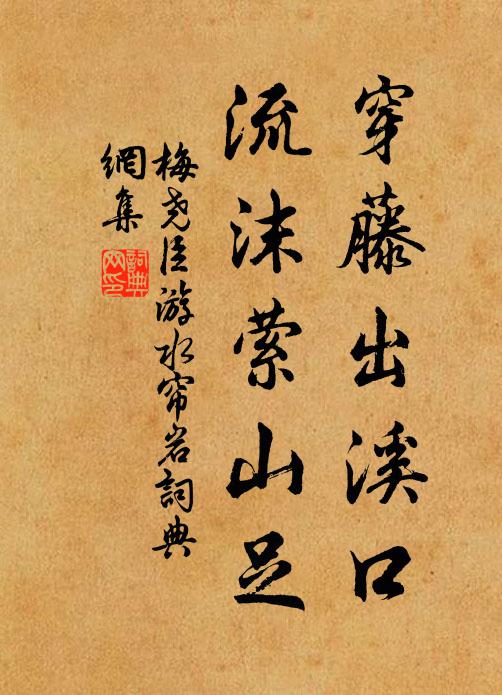 穿藤出溪口
流沫萦山足
梅尧臣游水帘岩詞典
網集
詞典
网印